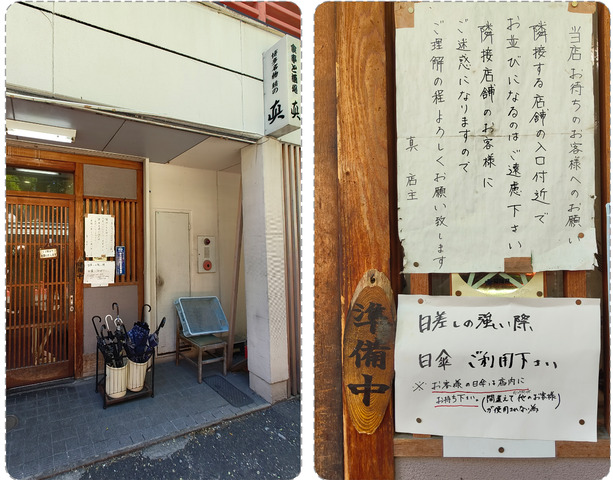 真
真
当店お待ちのお客様へのお願い
隣接する店舗の入口付近で
お並びになるのはご遠慮下さい
隣接店舗のお客様に
ご迷惑になりますので
ご理解の程よろしくお願い致します
真 店主
準備中
日差しの強い際
日傘 ご利用下さい
※ お客様の日傘は店内に
お持ち下さい。(間違えて他のお客様
が使用されない為